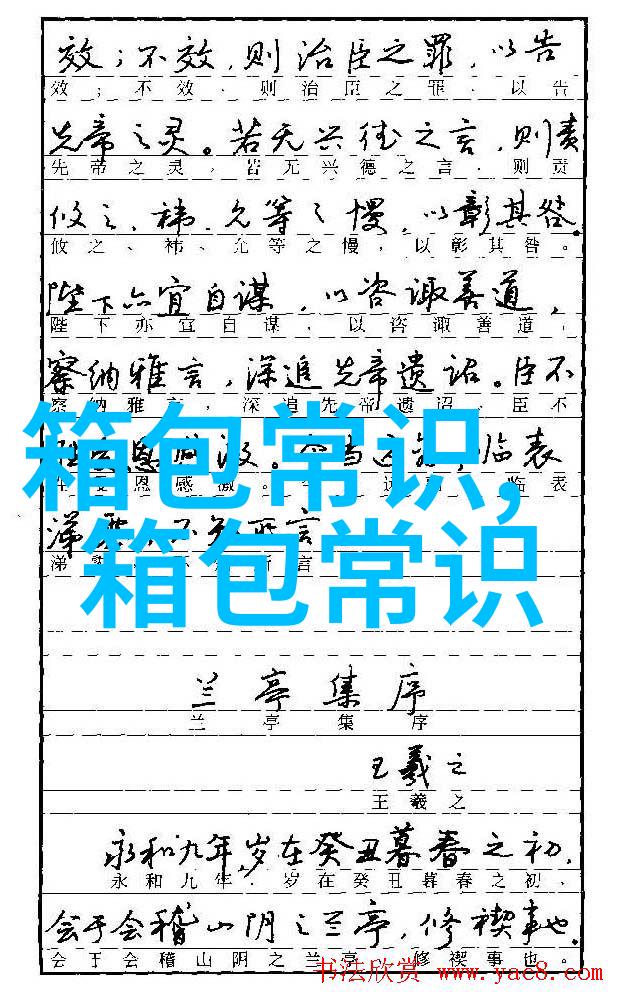 效；不效，则治臣之罪，以告
效；不效、则治臣之罪、以告
先帝之灵。若无兴德之言，则责
先帝之灵，若无兴德之言，则责
攸之、祎、允等之慢，以彰其咎。
攸之、祎、允等之慢，以彰其咎。
陛下亦宜自谋，以咨诹善道，
陛下亦宜自谋，以咨诹善道，
察纳雅言，深追先帝遗诏。臣不
察纳雅言，深追先帝遗诏，臣不
恩感激。
临表
恩感激。
临表
箱包常识，
箱包常识
兰亭集序
兰亭集序
王羲之
王羲之
永和九年，岁在癸丑暮春之初，
永和九年，岁在癸丑暮春之初、
会于会稽山阴之兰亭，修禊事也。
会于会稽山阴之兰亭，修禊事也。
书法欣赏 www.yac8.com